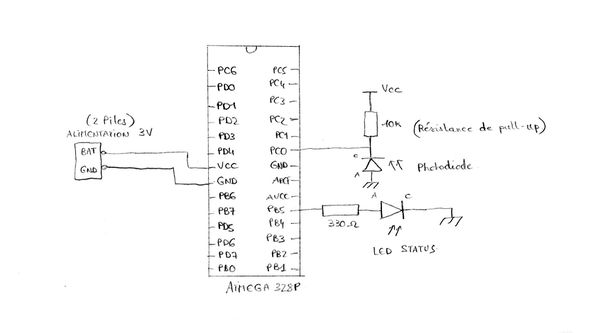 (2 Piles)
ALIMENTATION 3V
BAT
GND
PC6
PD0
PD1
PD2
PD3
PD4
VCC
GND
PB6
PB7
PD5
PD6
PD7
PB0
PC5
PC4
PC3
PC2
PC1
PC0
GND
AREF
AVCC
PB5
PB4
PB3
PB2
PB1
ATMEGA 328P
Vcc
10K
(Résistance de pull-up)
C
A
Photodiode
330Ω
A
C
LED STATUS